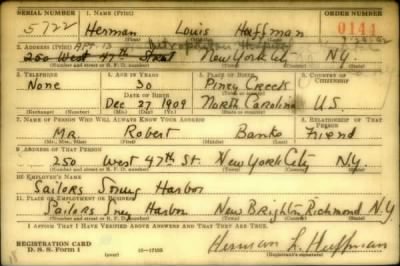 SERIAL NUMBER 1. NAME (Print) ORDER NUMBER
5722 Herman Louis Haffman 0144
2. ADDRESS (Print) APT. 13 Metropolitan Hospital
250 West 47th Street New York City N.Y.
(Number and street or R. F. D. number) (Town) (County) (State)
3. TELEPHONE 4. AGE IN YEARS 5. PLACE OF BIRTH 6. COUNTRY OF CITIZENSHIP
None 30 Piney Creek
DATE OF BIRTH
Dec 27 1909 North Carolina U.S.
(Exchange) (Number) (Mo.) (Day) (Yr.) (State or country)
7. NAME OF PERSON WHO WILL ALWAYS KNOW YOUR ADDRESS 8. RELATIONSHIP OF THAT PERSON
Mr. Robert Banks Friend
(Mr., Mrs., Miss) (First) (Middle) (Last)
9. ADDRESS OF THAT PERSON
250 West 47th St. New York City N.Y.
(Number and street or R. F. D. number) (Town) (County) (State)
10. EMPLOYER'S NAME
Sailors Snug Harbor
11. PLACE OF EMPLOYMENT OR BUSINESS
Sailors Snug Harbor New Brighton Richmond N.Y
(Number and street or R. F. D. number) (Town) (County) (State)
I AFFIRM THAT I HAVE VERIFIED ABOVE ANSWERS AND THAT THEY ARE TRUE.
REGISTRATION CARD
D. S. S. Form 1 (over) Herman L. Huffman